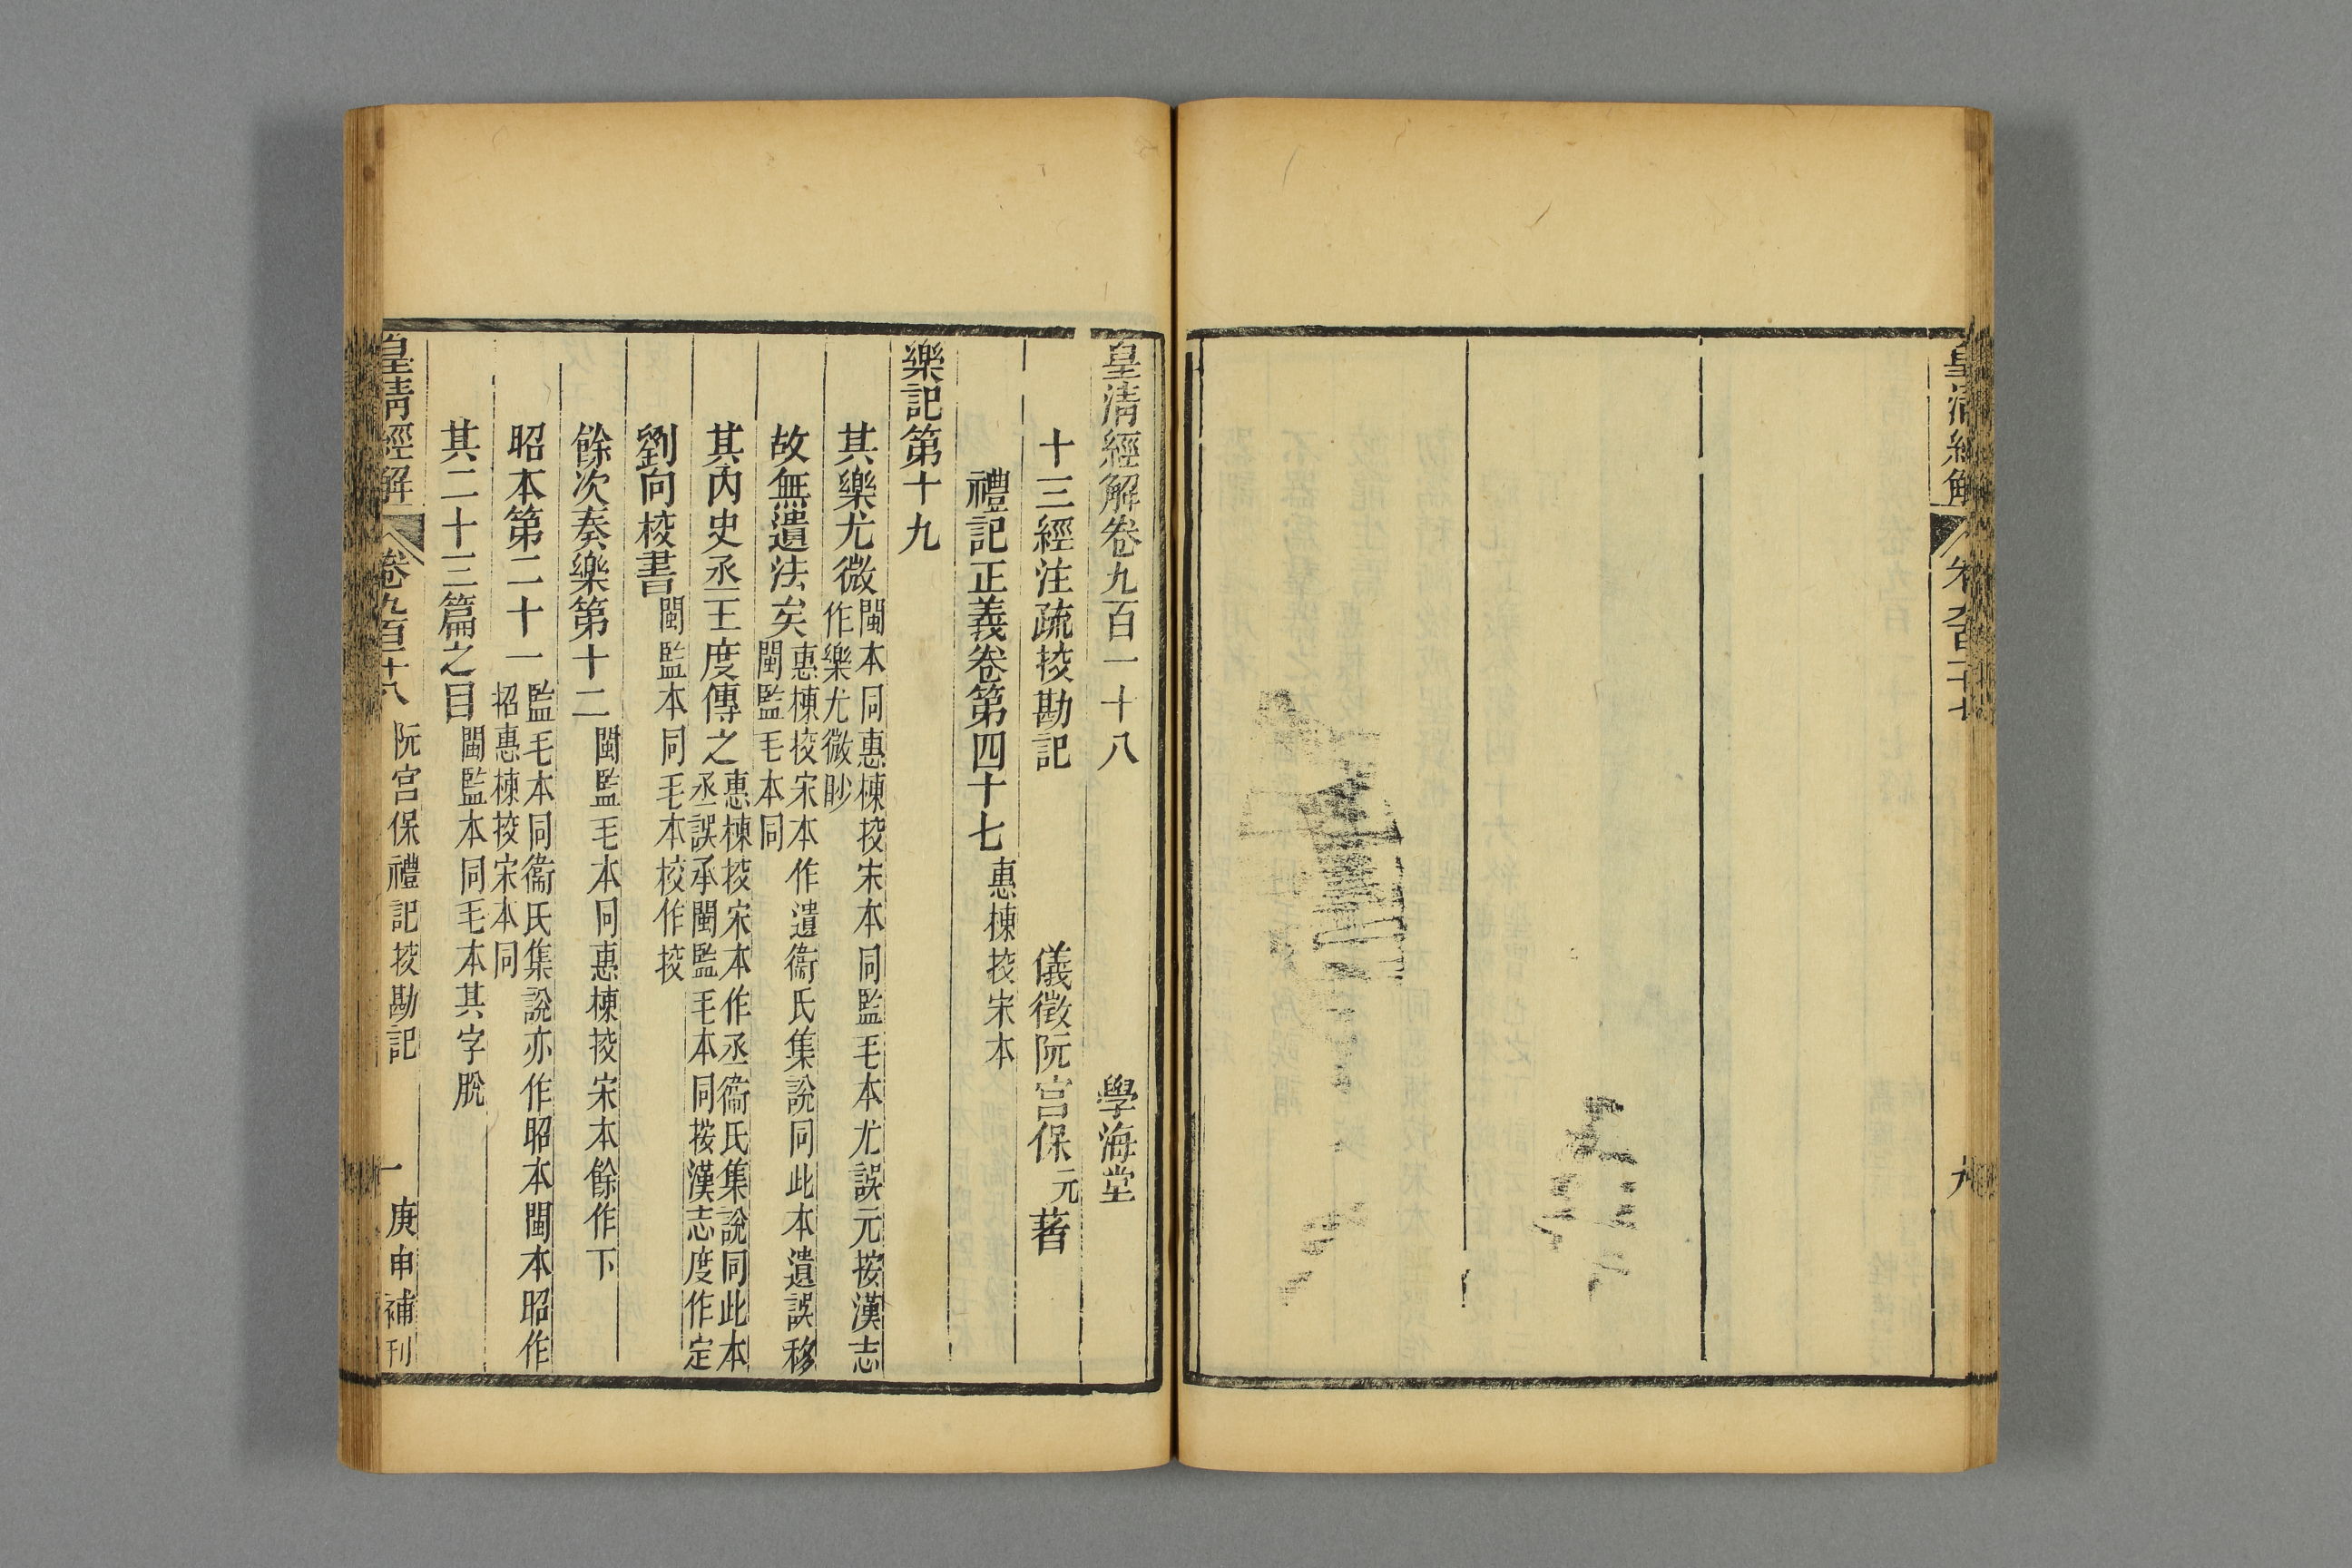 皇清經解
卷九百一十七
九
皇清經解卷九百一十八
學海堂
十三經注疏挍勘記
儀徵阮宮保元著
禮記正義卷第四十七惠棟挍宋本
樂記第十九
其樂尤微閩本同惠棟挍宋本同監毛本尤誤元按漢志
作樂尤微眇
故無遺法矣惠棟挍宋本作遺衞氏集說同此本遺誤移
閩監毛本同
其內史丞王度傳之惠棟挍宋本作丞衞氏集說同此本
丞誤承閩監毛本同按漢志度作定
劉向校書閩監本同毛本校作挍
餘次奏樂第十二閩監毛本同惠棟挍宋本餘作下
昭本第二十一監毛本同衞氏集說亦作昭本閩本昭作
招惠棟挍宋本同
其二十三篇之目閩監本同毛本其字脫
皇清經解
卷九百十八
阮宮保禮記挍勘記
一
庚申補刊